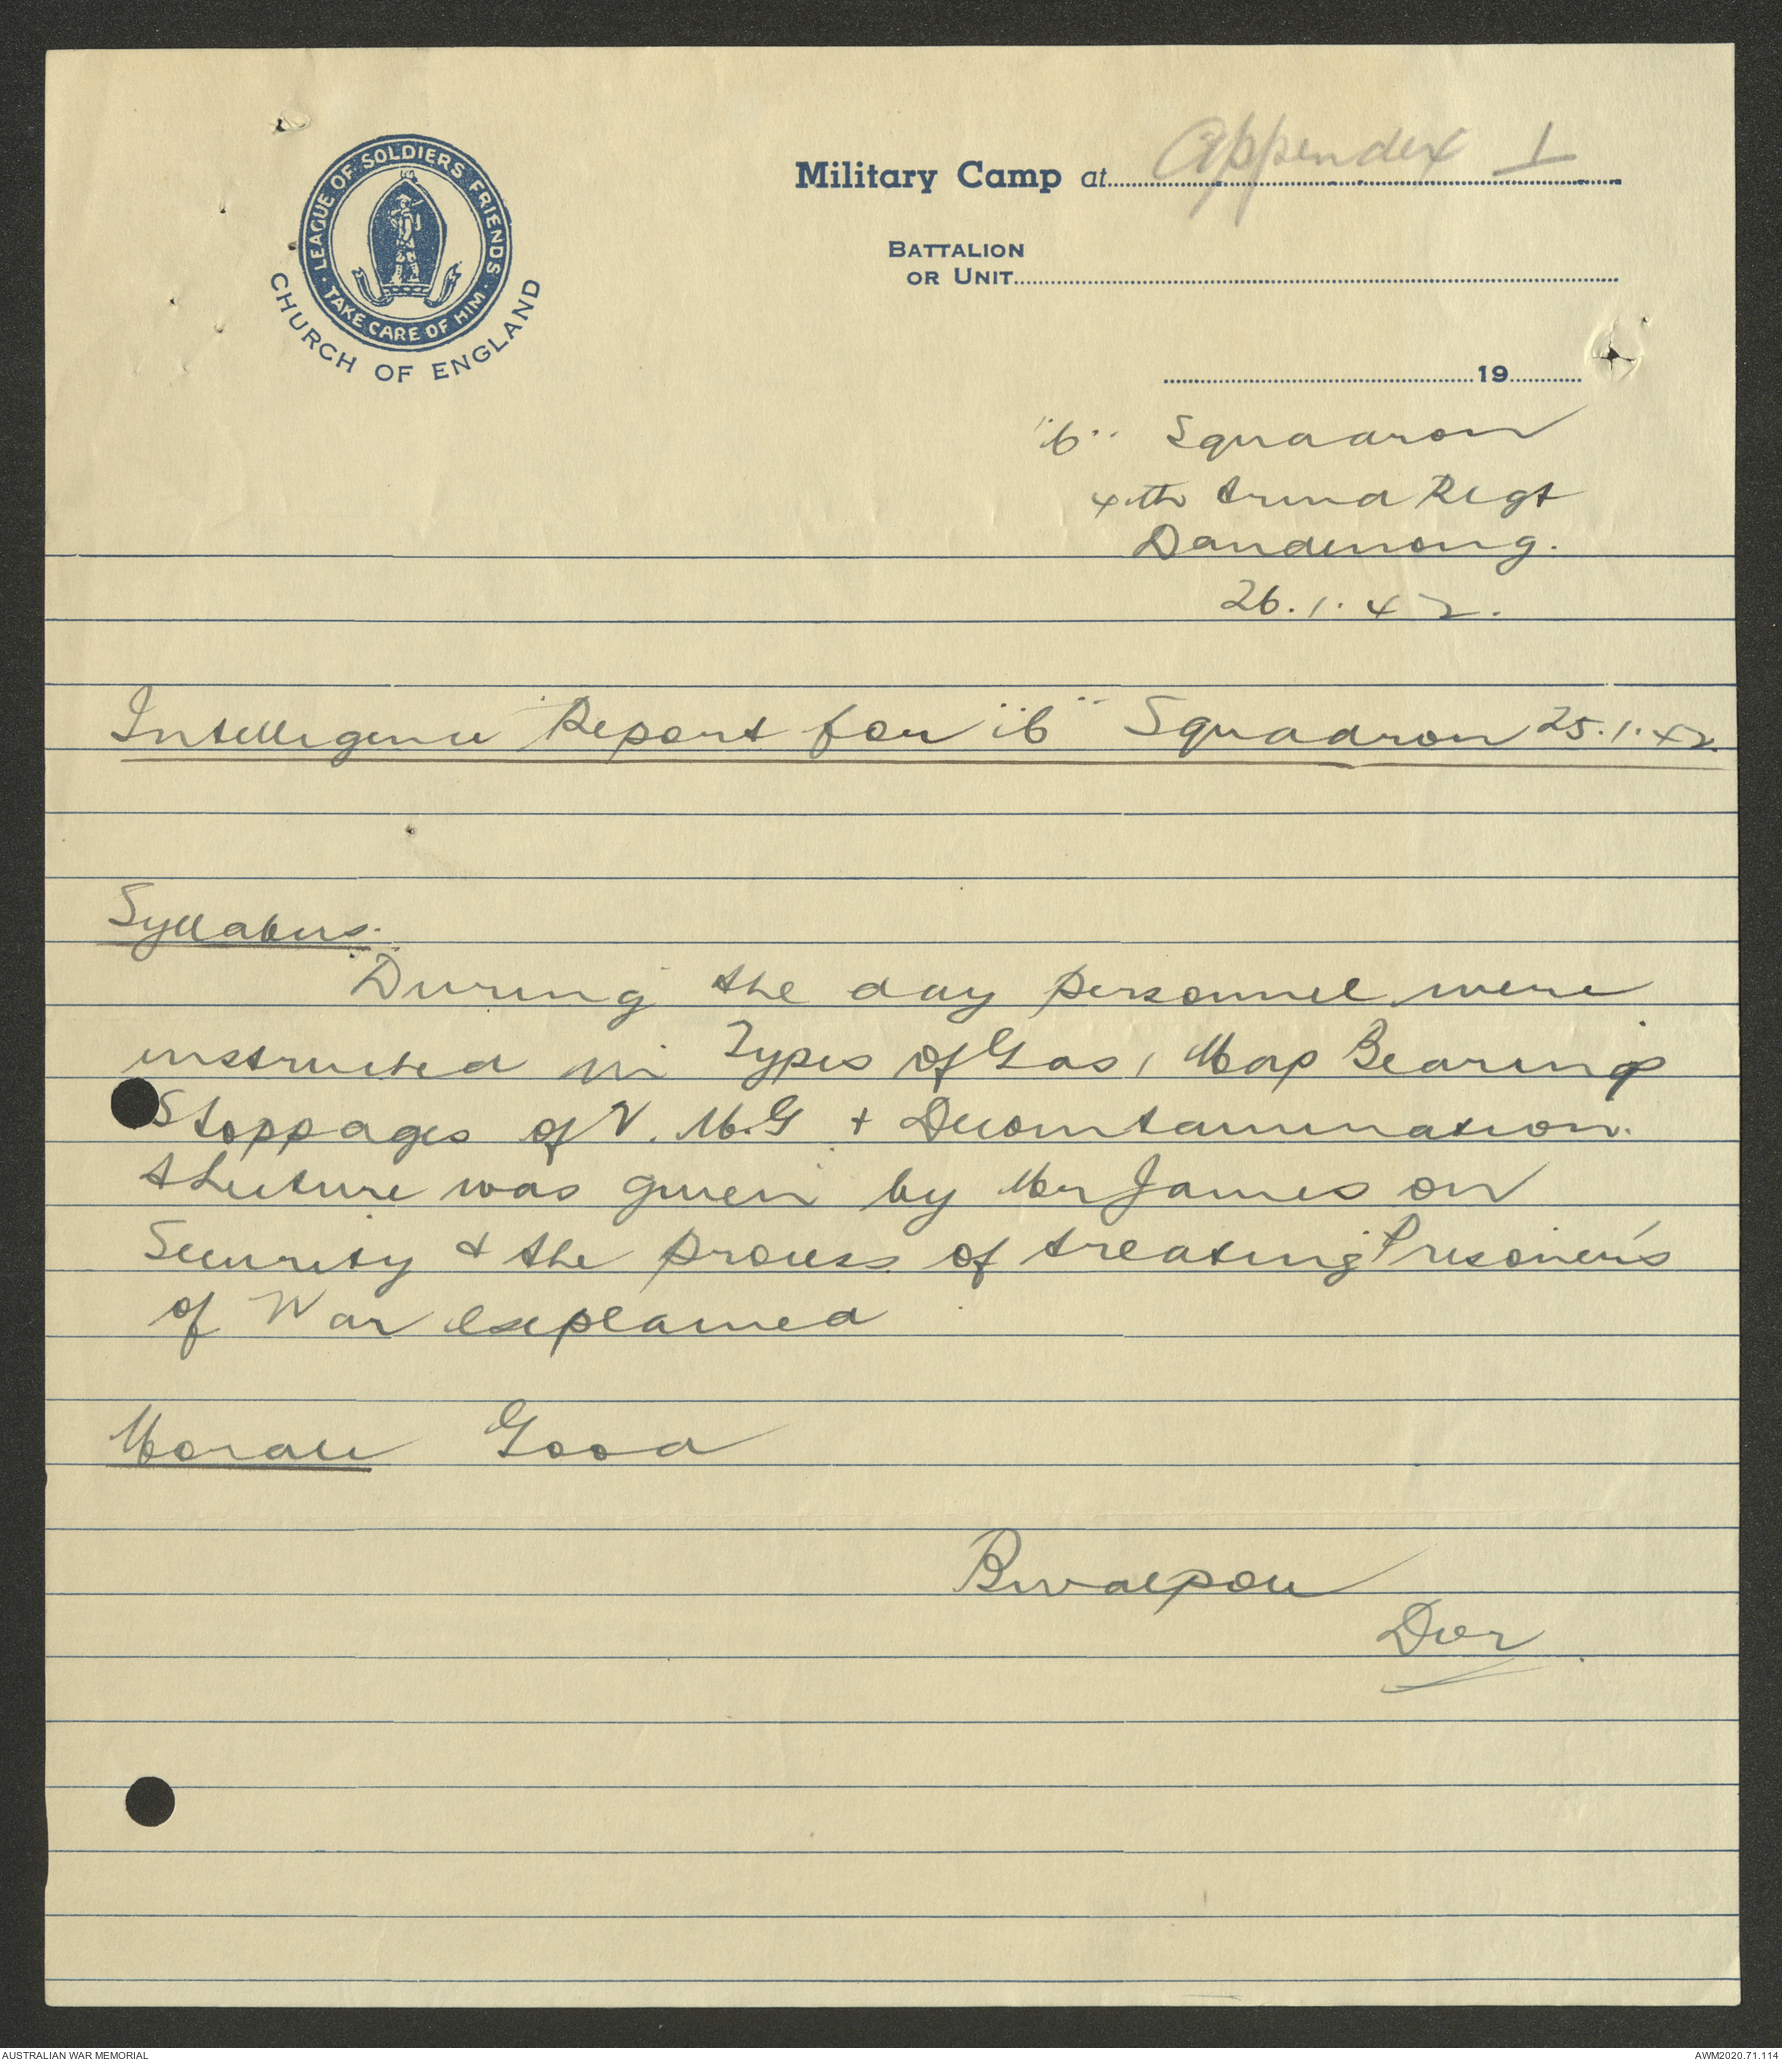 LEAGUE OF SOLDIERS FRIENDS · TAKE CARE OF HIM ·
CHURCH OF ENGLAND
Military Camp at Appendix 1
BATTALION
OR UNIT
19
Squadron
4th Armd Regt
Dandenong.
26.1.42.
Intelligence Report for Squadron 25.1.42
Syllabus.
During the day personnel were
instructed in Types of Gas, Map Bearing
Stoppages of V.M.G + Decomtamination.
A Lecture was given by Mr James on
Security & the process of treating Prisoner's
of War explained
Morale Good
AUSTRALIAN WAR MEMORIAL
AWM2020.71.114